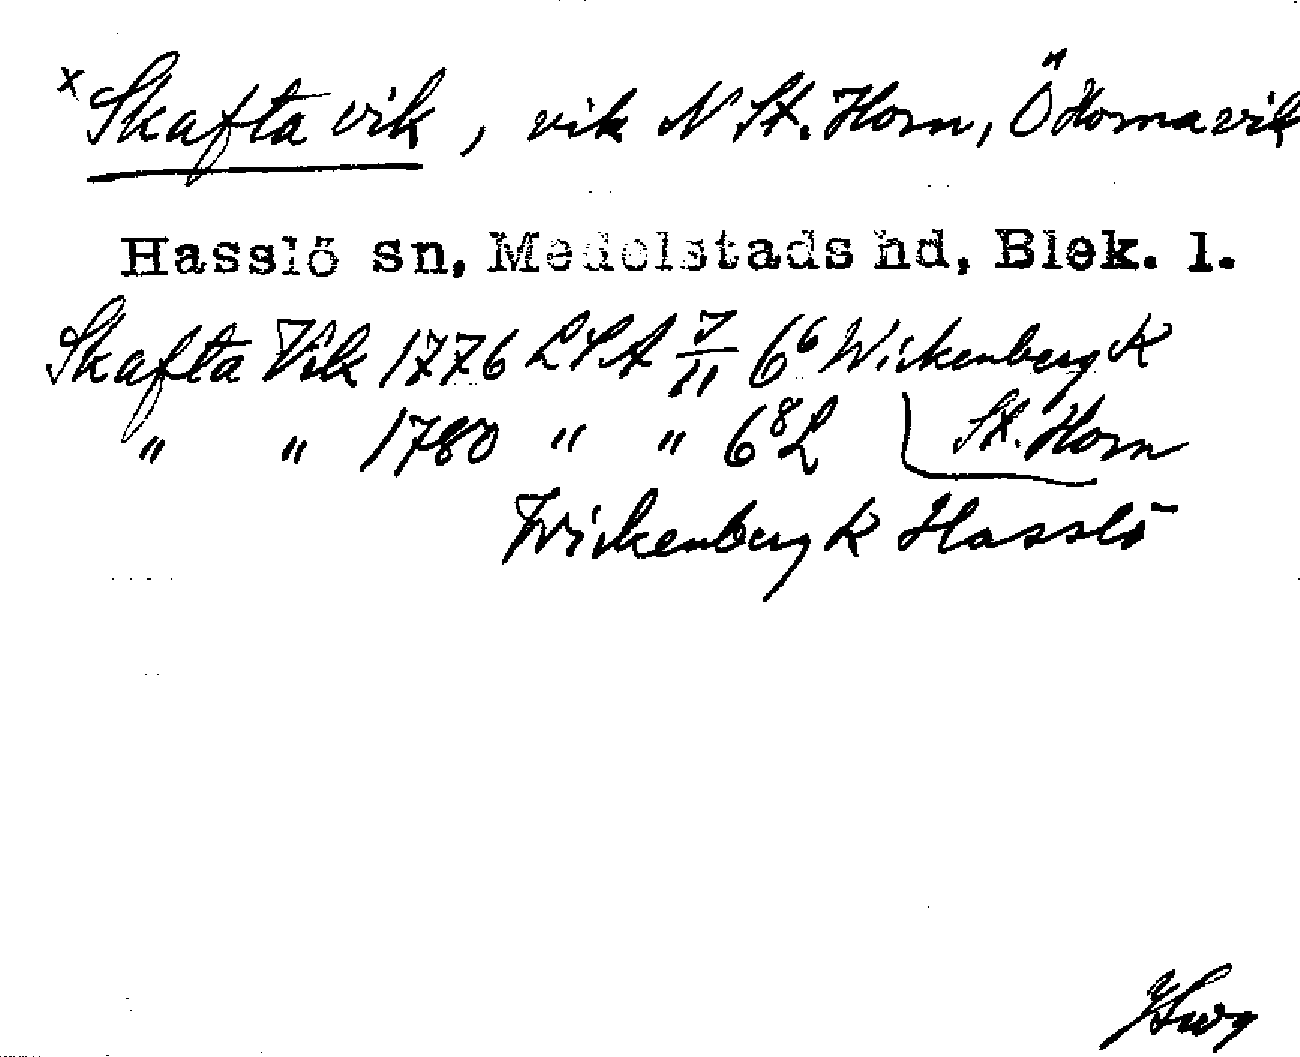 x Skafta vik, vik N St. Horn, Ö Horna vik
Hasslö sn, Medelstads hd, Blek. l.
Skafta Vik 1776 LSA J/11 6⁶ Wickenberg K
" " 1780 " " 6⁸ L St. Horn
Wickenberg K Hasslö